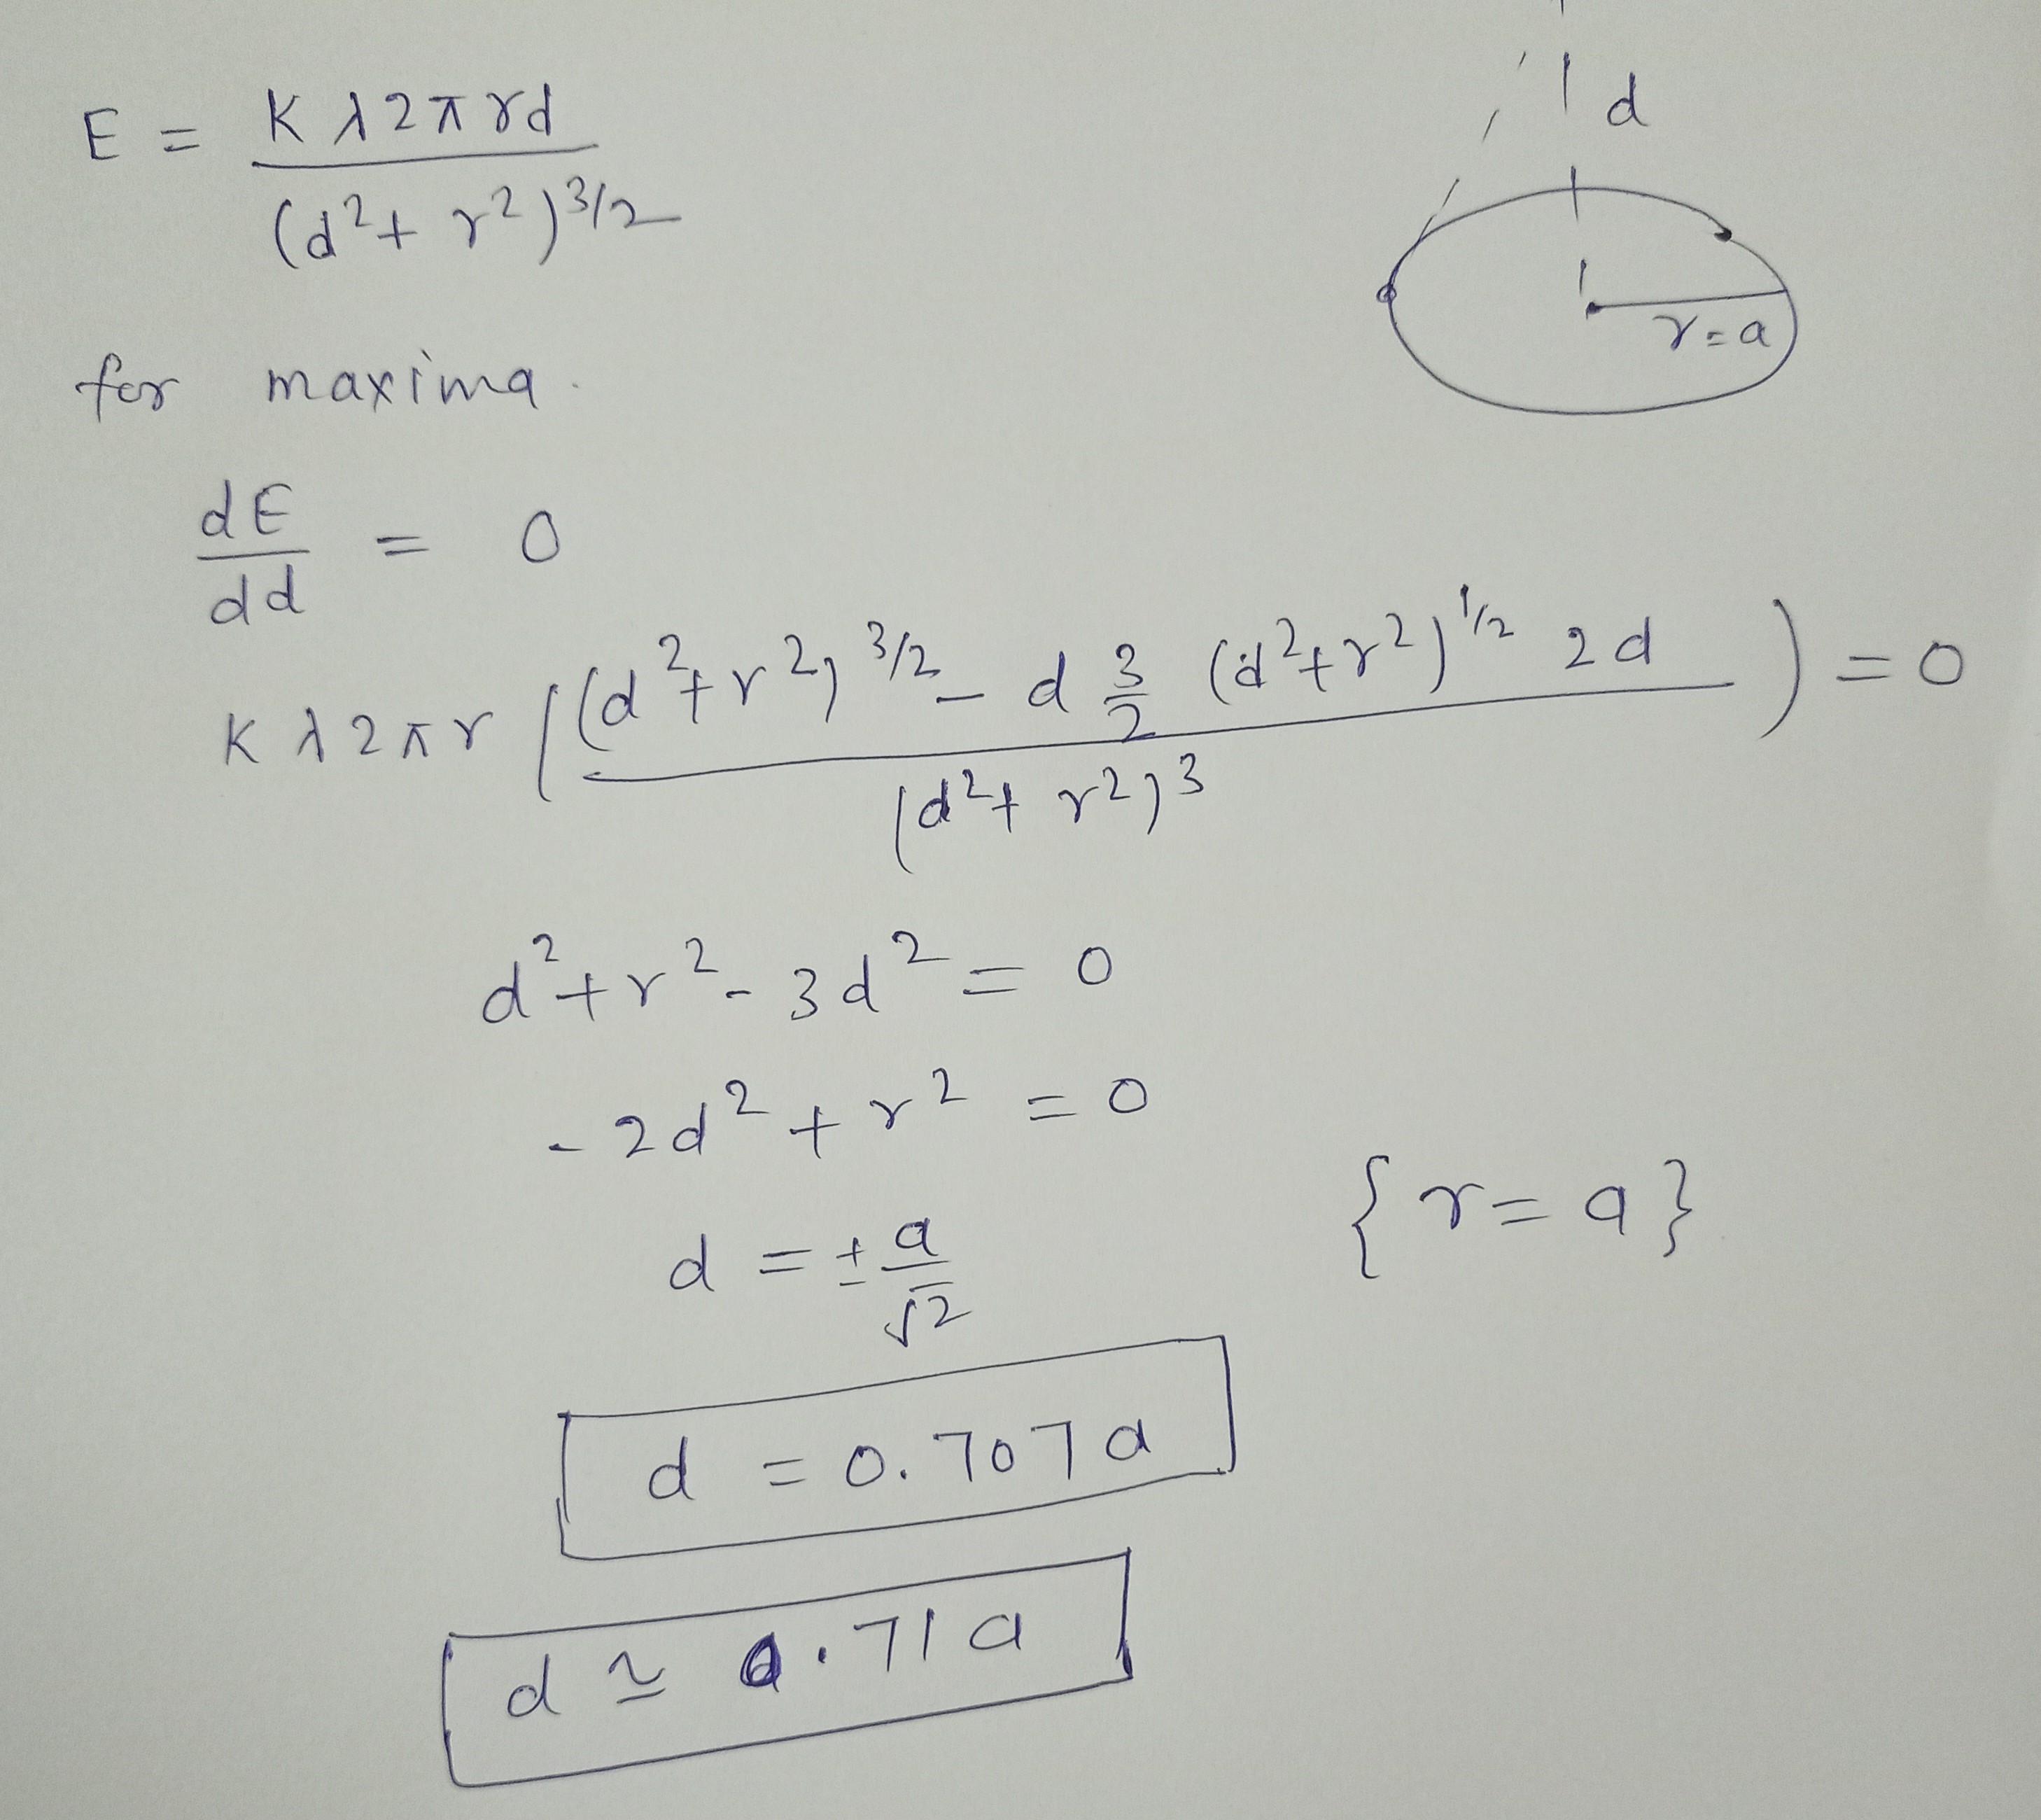 E = Kλ2πrd / (d²+ r²)^3/2
d
r=a
for maxima.
dE/dd = 0
Kλ2πr ( ((d²+r²)^3/2 - d 3/2 (d²+r²)^1/2 2d) / (d²+ r²)³ ) = 0
d²+r²- 3d² = 0
- 2d² + r² = 0
d = ± a/√2 {r = a}
d = 0.707a
d ≃ 0.71a